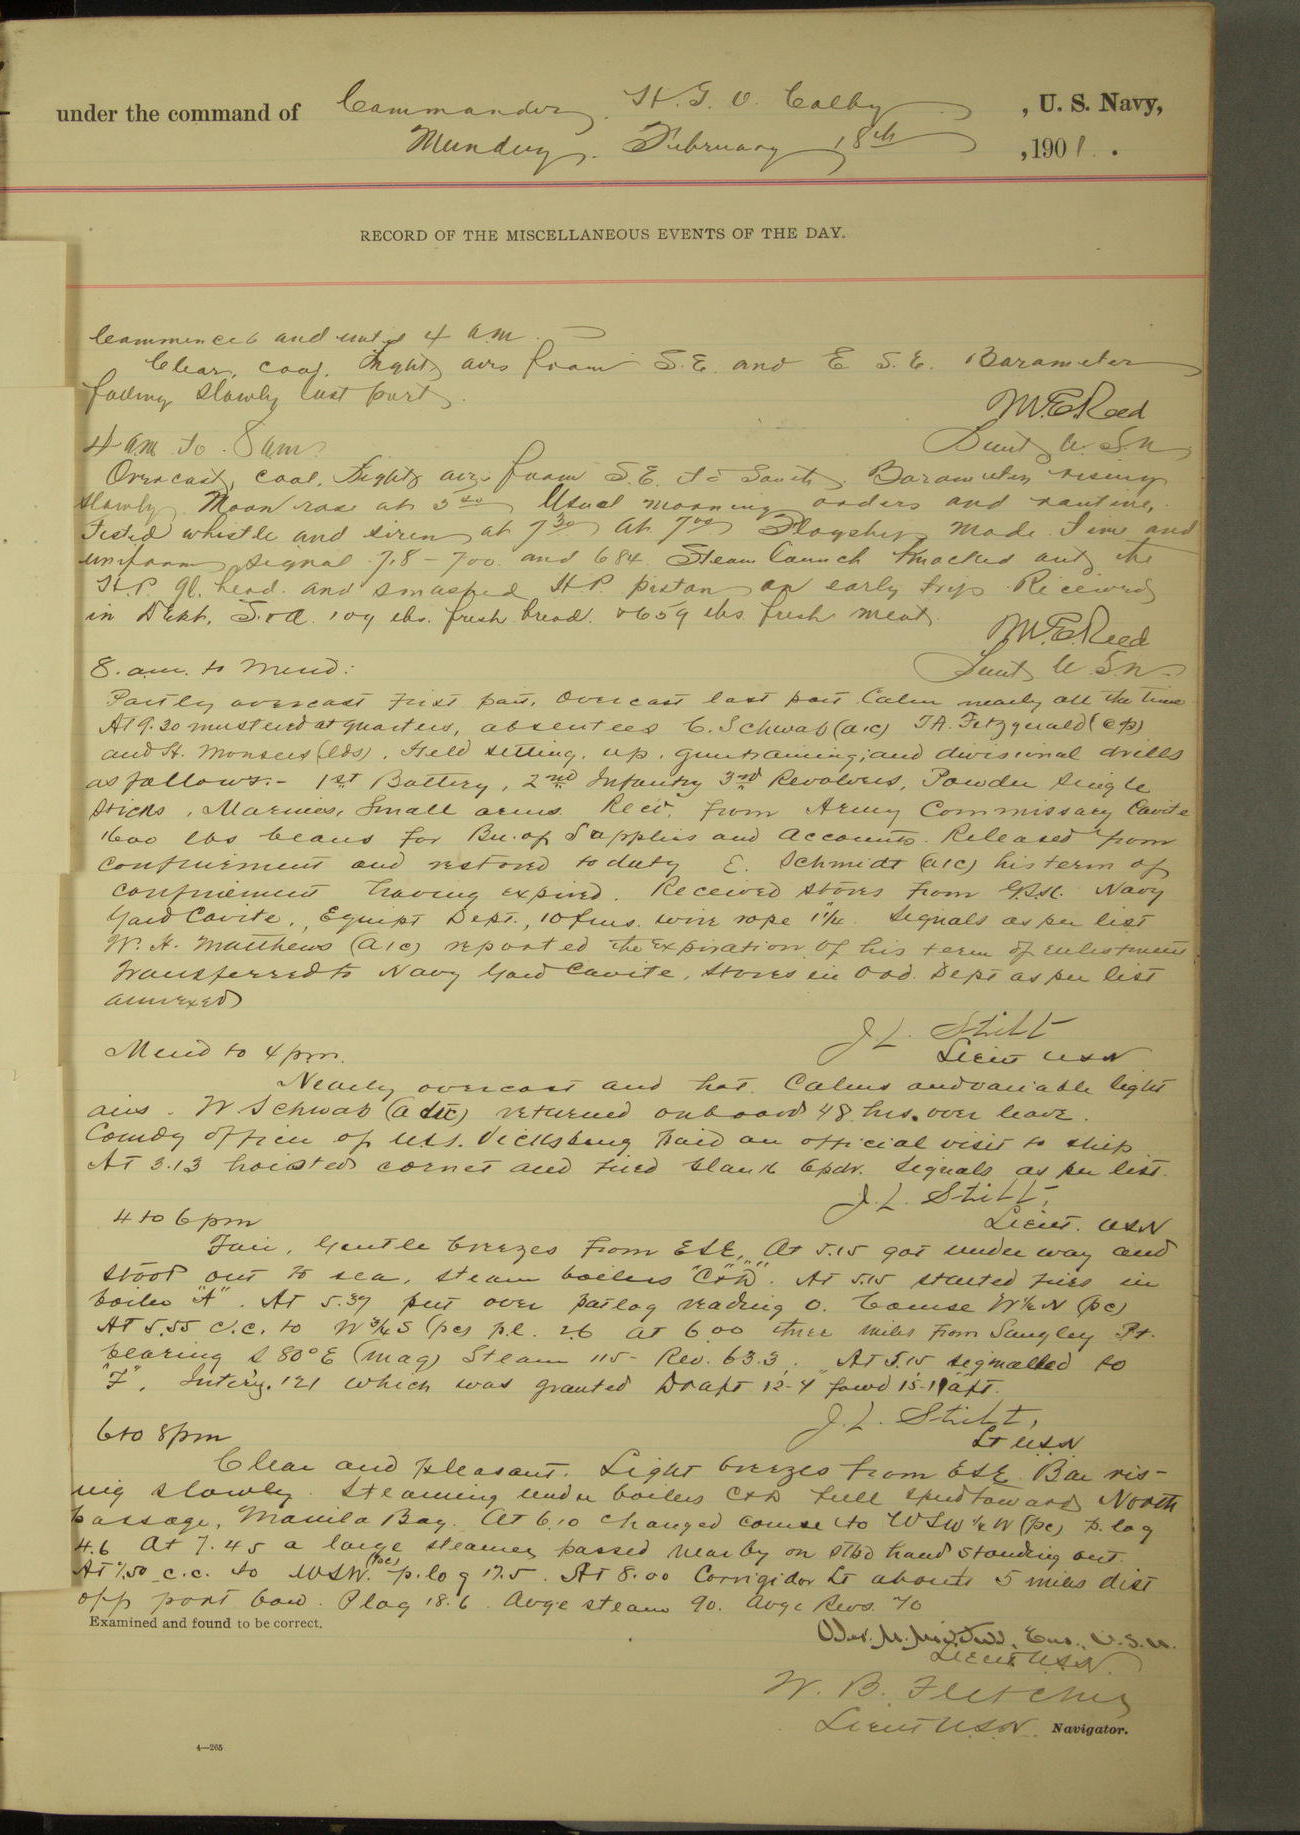 under the command of Commander H. G. O. Colby, U. S. Navy,
Monday, February 18th, 1901.
RECORD OF THE MISCELLANEOUS EVENTS OF THE DAY.
Commences and until 4 a.m.
Clear, cool, light airs from S.E. and E S.E. Barometer
falling slowly last part.
M.E. Reed
Lieut U.S.N.
4 a.m. to 8 a.m.
Overcast, cool, light airs from S.E. to South. Barometer rising
slowly. Moon rose at 5 Usual morning orders and routine.
Tested whistle and siren at 7 30 At 7 00 Flagship made time and
uniform signal 7.8 - 700 and 684. Steam launch knocked out the
H.P. cyl. head and smashed H.P. piston on early trip. Received
in Dept. S. & A. 109 lbs. fresh bread. & 659 lbs. fresh meat.
M.E. Reed
Lieut U.S.N.
8. a.m. to Merid:
Partly overcast first part, overcast last part. Calm nearly all the time
At 9.30 mustered at quarters, absentees C. Schwab (a1c) T.A. Fitzgerald (cp)
and H. Monsees (lds). Held setting up, guntraining, and divisional drills
as follows:- 1st Battery, 2nd Infantry 3rd Revolvers, Powder Single
Sticks, Marines, Small arms. Recd. from Army Commissary Cavite
1600 lbs beans for Bu. of Supplies and Accounts. Released from
confinement and restored to duty E. Schmidt (a1c) his term of
confinement having expired. Received stores from U.S. Navy
Yard Cavite, Equipt Dept., 10 fms. wire rope 1 1/4". Signals as per list
W. H. Matthews (a1c) reported the expiration of his term of enlistment
Transferred to Navy Yard Cavite, Stores in Ord. Dept as per list
annexed
J L. Stitt
Lieut USN
Merid to 4 pm.
Nearly overcast and hot. Calms and variable light
airs. W Schwab (a1c) returned onboard 48 hrs. over leave.
Comdg officer of U.S.S. Vicksburg paid an official visit to ship
At 3.13 hoisted cornet and fired blank 6 pdr. Signals as per list.
J. L. Stitt,
Lieut. USN
4 to 6 pm
Fair, Gentle breezes from ESE. At 5.15 got under way and
stood out to sea, steam boilers "C & D". At 5.15 started fires in
boiler "A". At 5.37 put over patlog reading 0. Course W 1/2 N (pc)
At 5.55 c.c. to W 3/4 S (pc) p.l. 2.6 at 6.00 three miles from Sangley Pt.
bearing S 80° E (mag) Steam 115 - Rev. 63.3. At 5.15 signalled to
"F", Interg. 121 which was granted Draft 12-4 forwd 15-11 aft.
J. L. Stitt,
Lt USN
6 to 8 pm
Clear and pleasant. Light breezes from ESE. Bar ris-
ing slowly. Steaming under boilers C & D full speed towards North
Passage, Manila Bay. At 6.10 changed course to WSW 1/2 W (pc) p. log
4.6 At 7.45 a large steamer passed nearby on stbd hand standing out.
At 7.50 c.c. to WSW. (pc) p. log 17.5. At 8.00 Corrigidor Lt about 5 miles dist
off port bow. P log 18.6. Avge steam 90. Avge Revs. 70
Examined and found to be correct.
Ens., U.S.N.
Lieut USN.
W. B. Fletcher
Lieut U.S.N. Navigator.
4—265